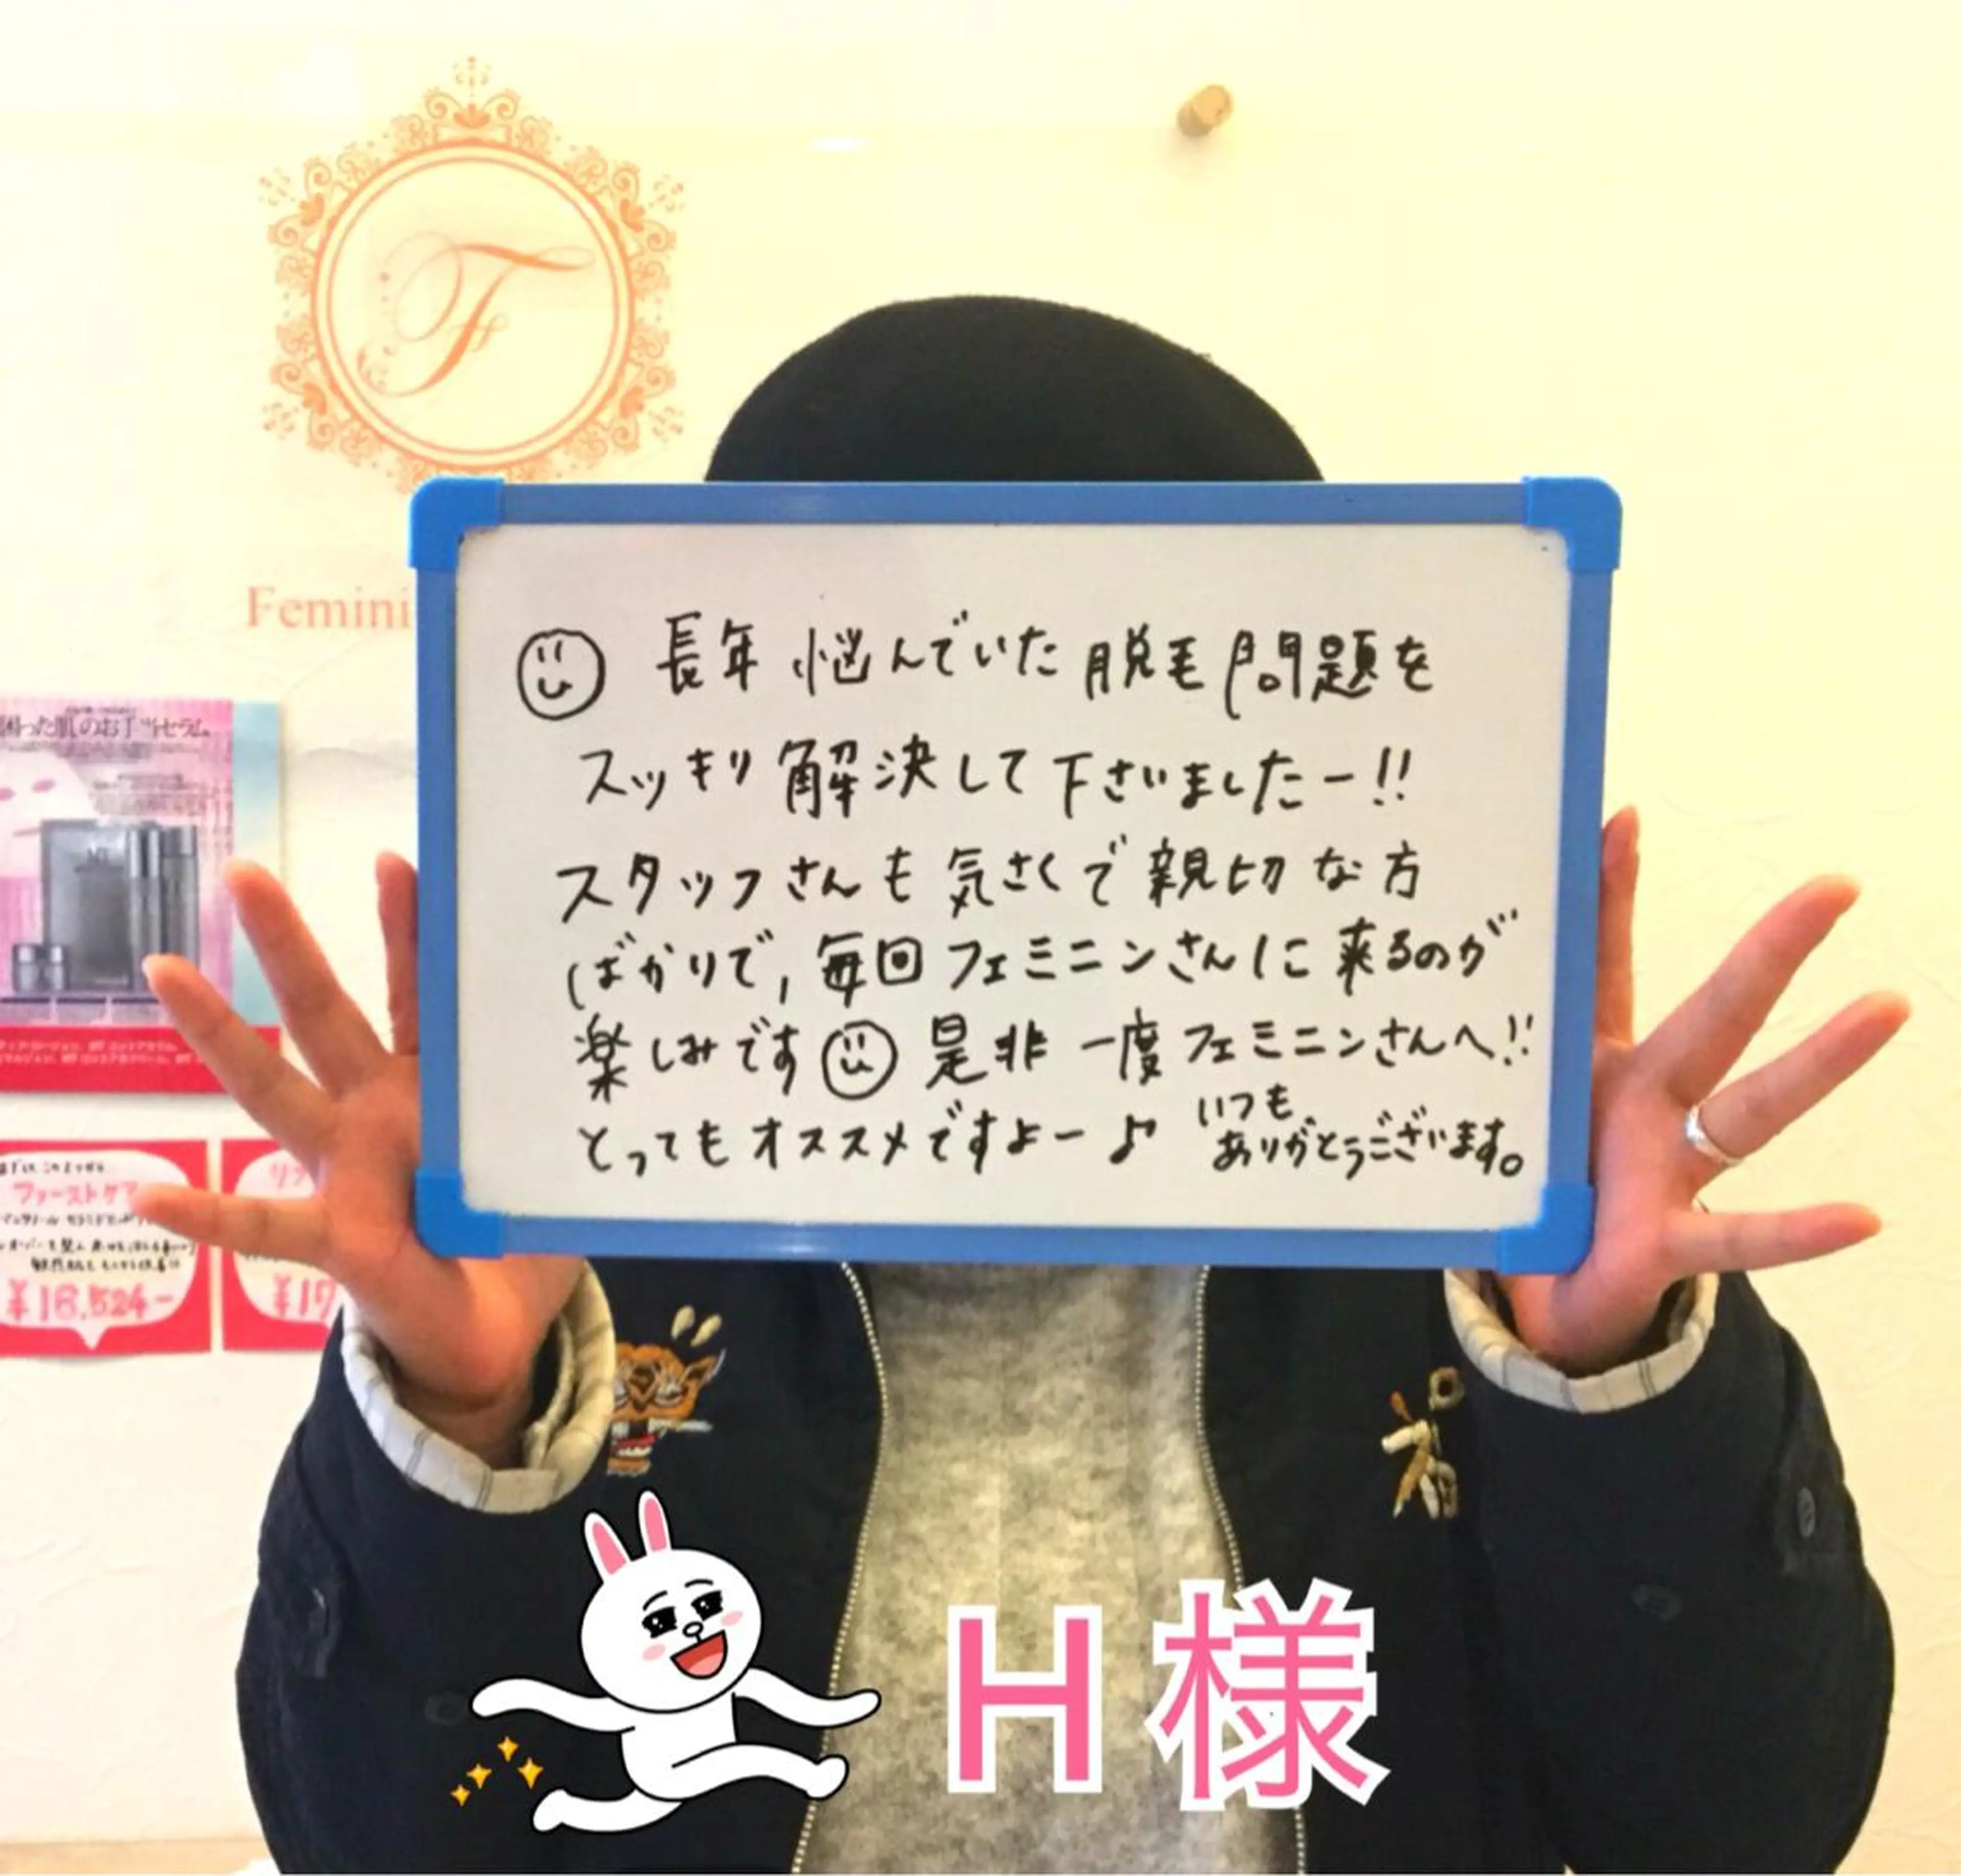 F
Femini
長年悩んでいた脱毛問題を
スッキリ解決して下さいましたー!!
スタッフさんも気さくで親切な方
ばかりで,毎回フェミニンさんに来るのが
楽しみです 是非一度フェミニンさんへ!!
とってもオススメですよー♪
いつも
ありがとうございます。
困った肌のお手当セラム。
ファーストケア
¥16,524-
¥17
H様